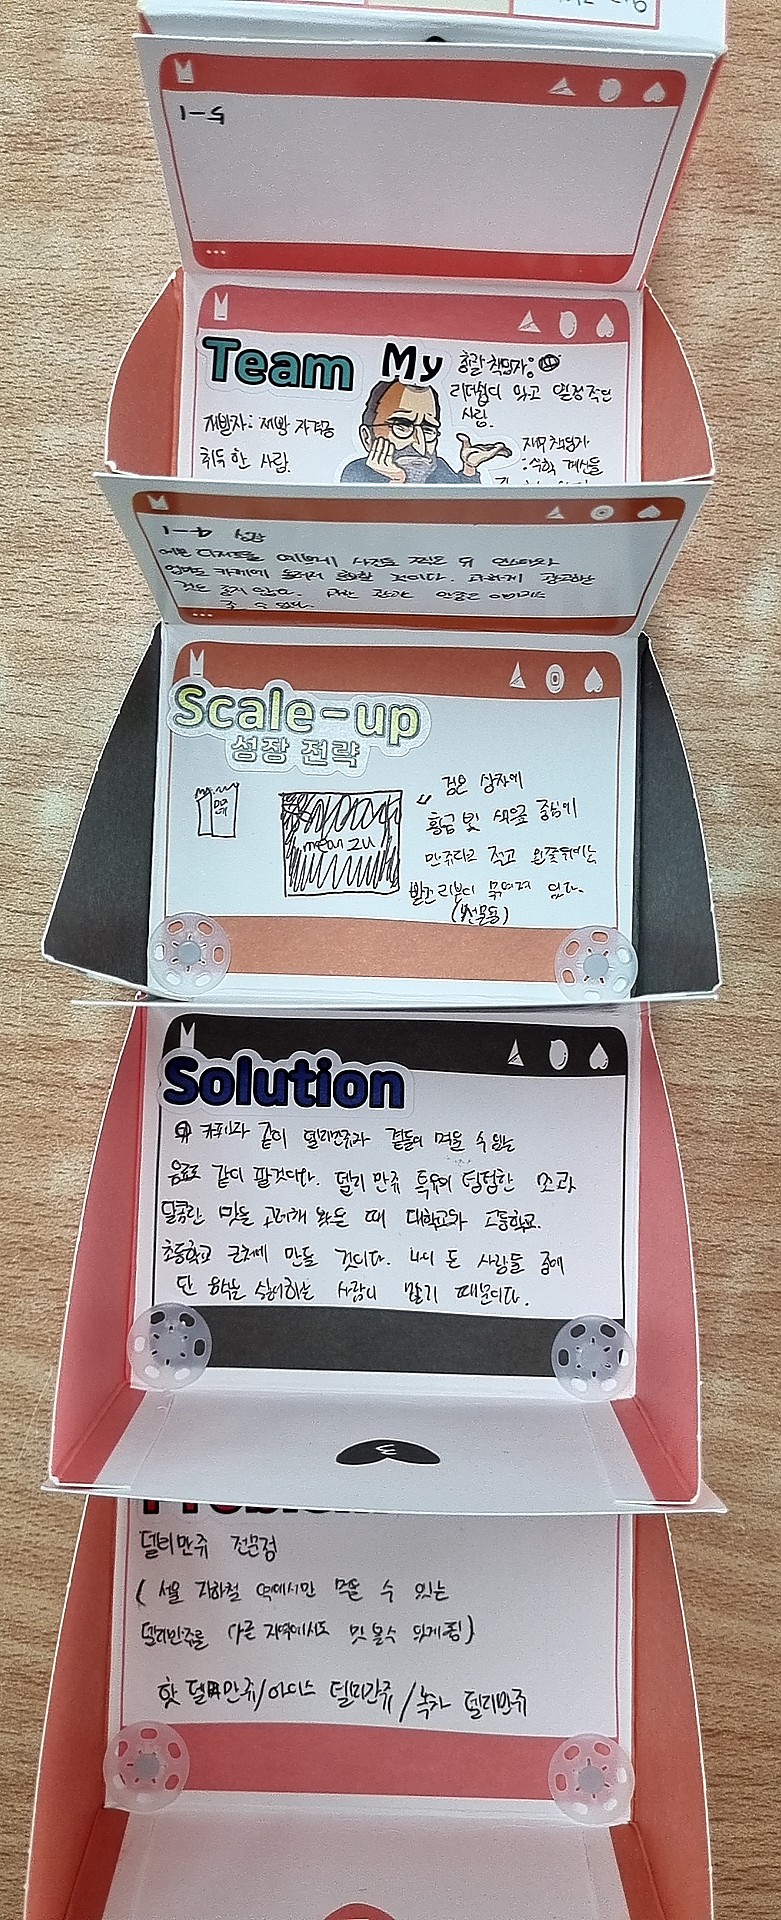 5-1
Team My
총괄책임자:
리더쉽이 있고 열정적인
사람.
개발자: 제빵 자격증
취득한 사람.
재무책임자
:수학 계산을
4-1
예쁜 디저트를 예쁘게 사진을 찍은 뒤
카페에 올려서 것이다. 과하게 광고하는
것은 좋지 않다.
줄 수 있다.
Scale-up
성장 전략
mean zu
검은 상자에
황금 빛 색으로 중심에
만쥬라고 적고 왼쪽위에는
빨간 리본이 묶여져 있다.
(선물용)
Solution
카페라 같이 델리만쥬와 곁들여 먹을 수 있는
음료도 같이 팔것이다. 델리 만쥬 특유의 텁텁한 맛과
달콤한 맛을 고려해 봤을 때 대학교와 고등학교.
초등학교 근처에 만들 것이다. 나이 든 사람들 중에
단 음식을 싫어하는 사람이 많기 때문이다.
Problem
델리만쥬 전문점
( 서울 지하철 역에서만 먹을 수 있는
델리만쥬를 다른 지역에서도 맛 볼수 있게 됨)
핫 델리만쥬/아이스 델리만쥬/녹차 델리만쥬